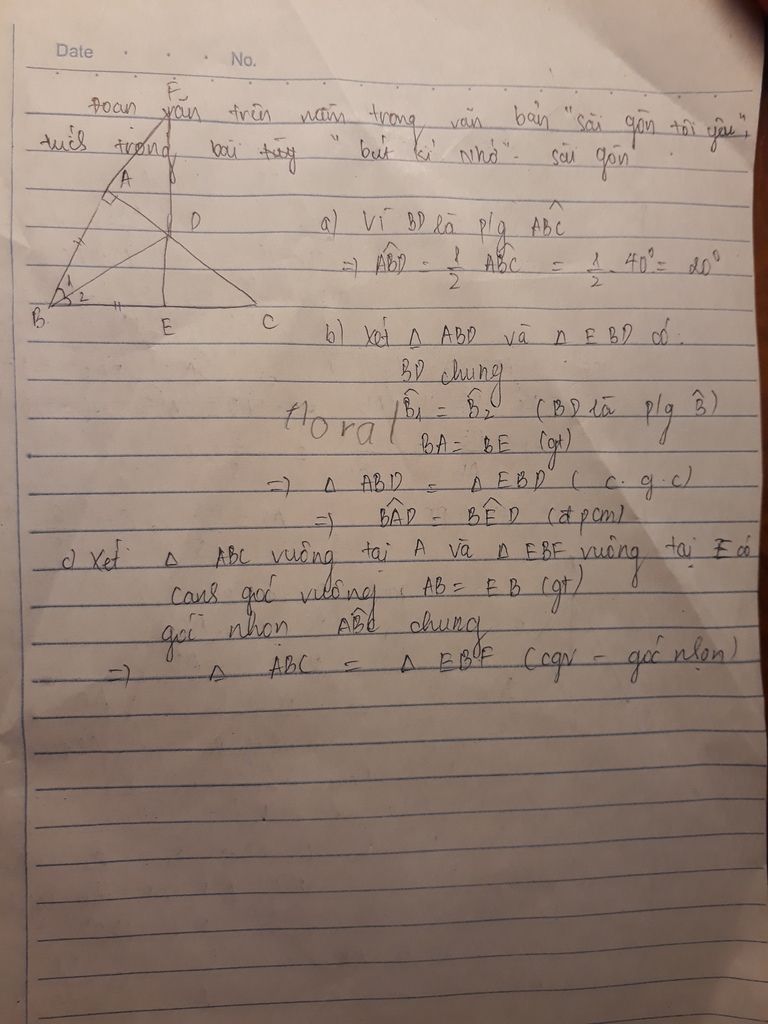 Date No.
Đoạn văn trên nằm trong văn bản "Sài gòn tôi yêu",
trong bài "bút kí Nhớ - Sài gòn
F
A
D
1
2
B
E
C
a) Vì BD là p/g ABĈ
=> AB̂D = 1/2 AB̂C = 1/2 . 40° = 20°
b) Xét Δ ABD và Δ EBD có.
BD chung
floral
B̂1 = B̂2 (BD là p/g B̂)
BA = BE (gt)
=> Δ ABD = Δ EBD ( c.g.c)
=> BÂD = BÊD (đpcm)
c) Xét Δ ABC vuông tại A và Δ EBF vuông tại E có
góc vuông AB = EB (gt)
góc nhọn AB̂C chung
=> Δ ABC = Δ EBF (cgv - góc nhọn)